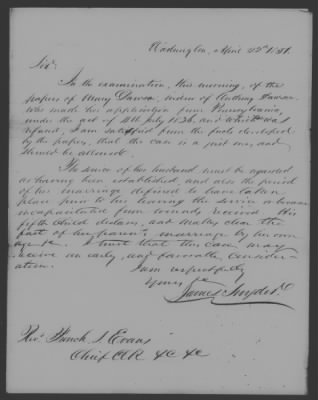 Washington, April 22d 1851.
Sir,
In the examination, this morning, of the
papers of Mary Dawson, widow of Anthony Dawson
who made her application from Pennsylvania,
under the act of 4th July 1836, and which was
refused, I am satisfied from the facts developed
by the papers, that the case is a just one, and
should be allowed.
The service of her husband must be regarded
as having been established, and also the period
of her marriage defined to have taken
place prior to his leaving the service in
incapacitated from wounds received. His
fifth child declares, and
fact of her parents marriage by his own
I trust that this case may
receive an early, and favorable consider-
ation.
I am respectfully
Yours &c
James Snyder
L. Evans
Chief Clk &c &c